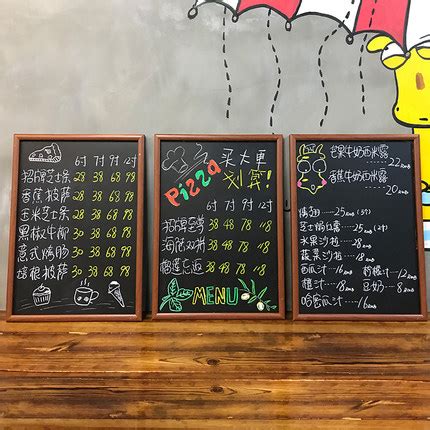 6寸 7寸 9寸 12寸
招牌芝士条 28 38 68 98
香蕉披萨 28 38 68 98
玉米芝士条 28 38 68 98
黑椒牛柳 30 38 68 98
意式烤肠 30 38 68 98
培根披萨 30 38 68 98
Pizza
买大单
划算!
6寸 7寸 9寸 12寸
招牌至尊 38 48 78 118
海陆双拼 38 48 78 118
榴莲忘返 38 48 78 118
MENU
芒果牛奶西米露
22RMB
香蕉牛奶西米露
20RMB
烤翅 25RMB(对)
芝士焗豆蓉 25RMB
水果沙拉 28RMB
蔬菜沙拉 18RMB
西瓜汁 16RMB
柠檬汁 12RMB
橙汁 18RMB
豆奶 8RMB
哈密瓜汁 16RMB